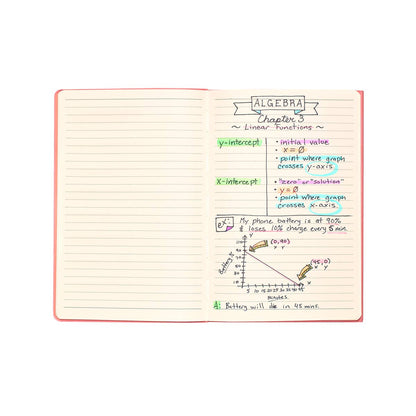 ALGEBRA
Chapter 3
~ Linear Functions ~
y-intercept
• initial value
• x = Ø
• point where graph
crosses y-axis
x-intercept
• "zero" or "solution"
• y = Ø
• point where graph
crosses x-axis
ex: My phone battery is at 90%
& loses 10% charge every 5 min.
Battery %
y
(0, 90)
x y
(45, 0)
x y
x
5 10 15 20 25 30 35 40 45
minutes
A: Battery will die in 45 mins.